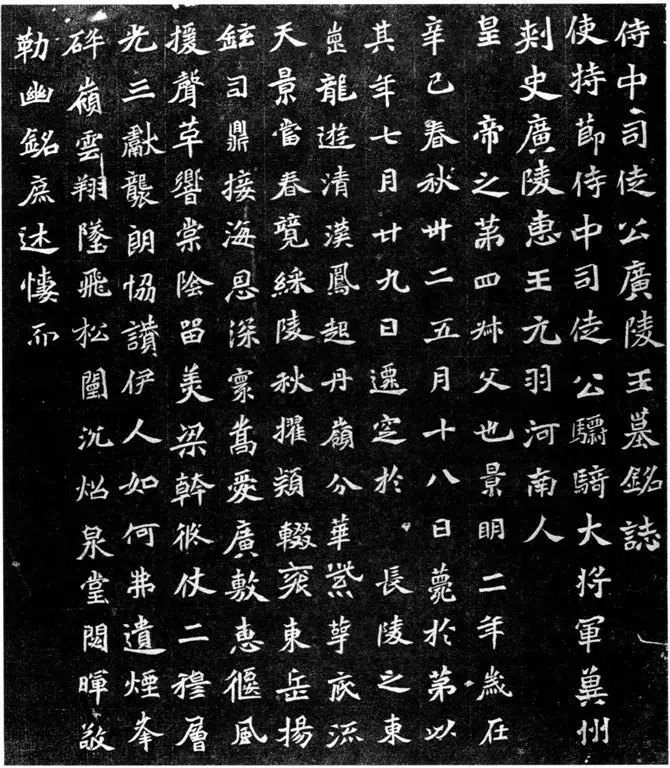 侍中司徒公廣陵王墓銘誌
使持節侍中司徒公驃騎大將軍冀州
刺史廣陵惠王元羽河南人
皇帝之第四叔父也景明二年歲在
辛巳春秋卅二五月十八日薨於第以
其年七月廿九日遷窆於長陵之東
崗龍遊清漢鳳起丹嶺分華紫萼底流
天景當春競綵陵秋擢穎輟袞東岳揚
鉉司鼎接海恩深寰嵩愛廣敷惠偃風
援聲草響棠陰留美梁幹攸仗二穆層
光三獻襲朗協讚伊人如何弗遺煙峯
碎嶺雲翔墜飛松沉炤泉堂閟暉敬
勒幽銘庶述悽而